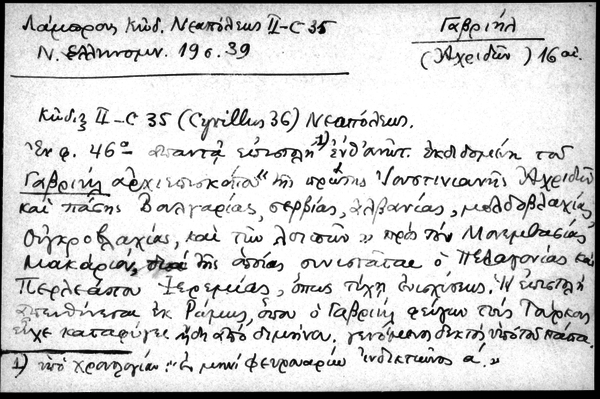 Λάμπρος Κώδ. Νεαπόλεως ΙΙ-C 35
Γαβριήλ
Ν. Ελληνομν. 19 σ. 39
(Ἀχριδῶν) 16 αἰ.
Κῶδιξ ΙΙ-C 35 (Cyrillus 36) Νεαπόλεως.
Ἐν φ. 46α ἀπαντᾷ ἐπιστολὴ 1) ἐκδιδομένη τοῦ
Γαβριήλ ἀρχιεπισκόπου "τῆς πρώτης Ἰουστινιανῆς Ἀχριδῶν
καὶ πάσης Βουλγαρίας, Σερβίας, Ἀλβανίας, Μολδοβλαχίας
Οὐγκροβλαχίας, καὶ τῶν λοιπῶν" πρὸς τὸν Μονεμβασίας
Μακάριον, διὰ τῆς ὁποίας συνιστᾶται ὁ Πελαγονίας καὶ
Περλεάπου Ἱερεμίας, ὅπως τύχῃ ἐνισχύσεως. Ἡ ἐπιστολὴ
ἀπευθύνεται ἐκ Ρώμης, ὅπου ὁ Γαβριὴλ φεύγων τοὺς Τούρκους
εἶχε καταφύγει ἤδη ἀπὸ διμήνου. γενόμενος δεκτὸς ὑπὸ τοῦ πάπα.
1) ὑπὸ χρονολογίαν: "Ἐν μηνὶ Φευρουαρίῳ ἰνδικτιῶνος α'."